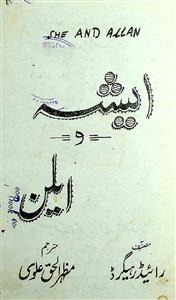 SHE AND ALLAN
ایشہ
و
ایلن
مصنف
رائیڈر ہیگرڈ
مترجم
مظہر الحق علوی